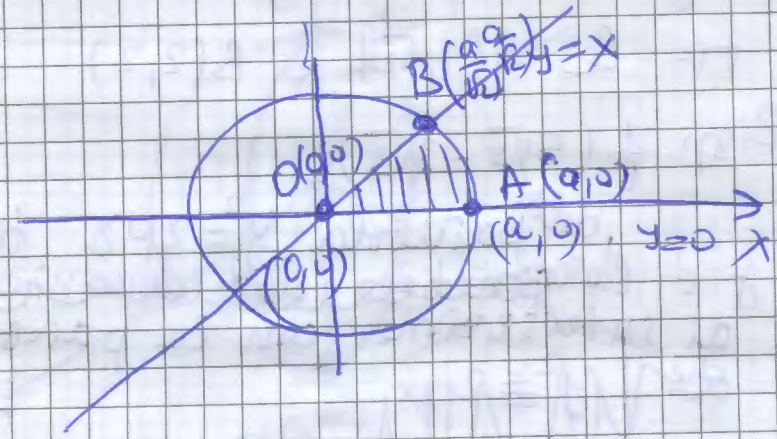 B(a/√2 a/√2) y=x
O(0,0)
A(a,0)
(a,0) y=0 x
(0,0)